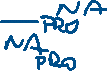 NA
— PRO
NA
PRO